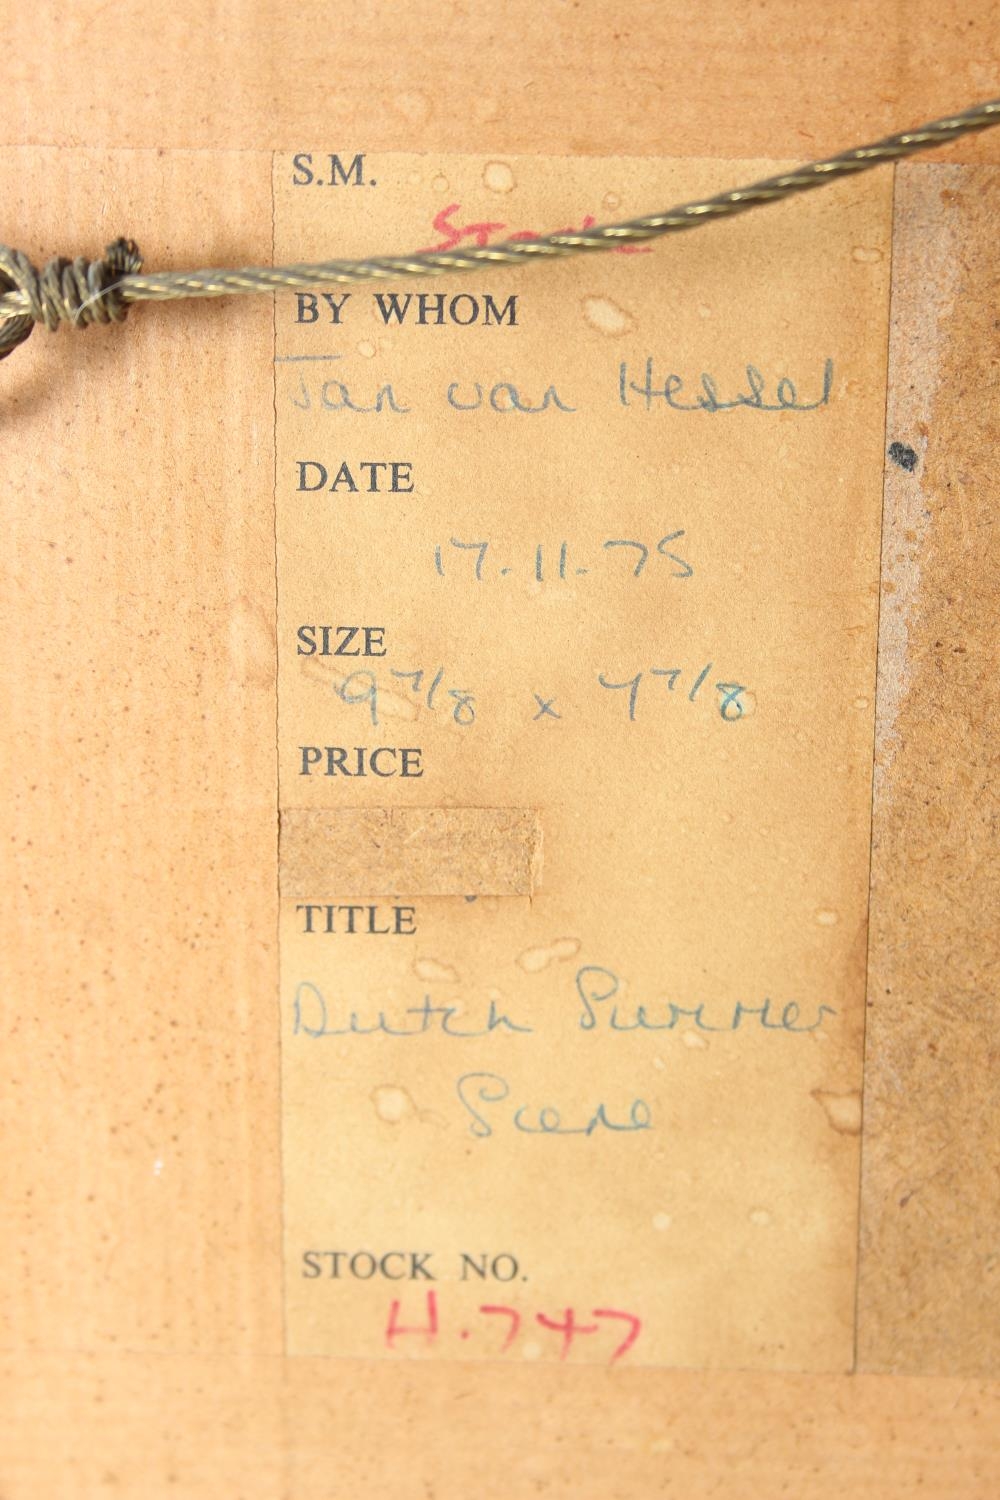 S.M.
BY WHOM
Jan van Hessel
DATE
17.11.75
SIZE
9 7/8 x 7 7/8
PRICE
TITLE
Dutch Summer
Scene
STOCK NO.
H.747